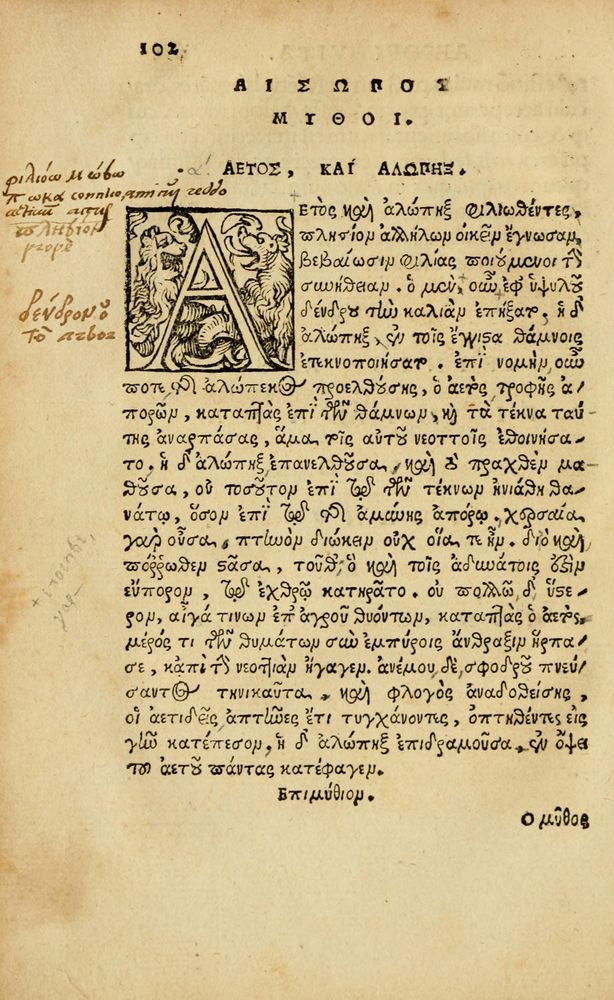 102
ΑΙΣΩΠΟΣ
ΜΥΘΟΙ.
ΑΕΤΟΣ, ΚΑΙ ΑΛΩΠΗΞ.
ΑΕτὸς καὶ ἀλώπηξ φιλιωθέντες,
πλησίον ἀλλήλων οἰκεῖν ἔγνωσαν,
βεβαίωσιν φιλίας ποιούμενοι τὴν
συνήθειαν. ὁ μὲν, οὖν ἐφ' ὑψηλοῦ
δένδρου τὴν καλιὰν ἔπηξεν. ἡ δ'
ἀλώπηξ, ἐν τοῖς ἔγγιστα θάμνοις
ἐτεκνοποιήσατο. ἐπὶ νομὴν οὖν
ποτε τῆς ἀλώπεκος προελθούσης, ὁ ἀετὸς τροφῆς ἀ-
πορῶν, καταπτὰς ἐπὶ τῶν θάμνων, καὶ τὰ τέκνα ταύ
της ἀναρπάσας, ἅμα τοῖς αὐτοῦ νεοττοῖς ἐθοινήσα-
το. ἡ δ' ἀλώπηξ ἐπανελθοῦσα, καὶ τὸ πραχθὲν μα-
θοῦσα, οὐ τοσοῦτον ἐπὶ τῷ τῶν τέκνων ἠνιάθη θα-
νάτῳ, ὅσον ἐπὶ τῷ τῆς ἀμύνης ἀπόρῳ. χερσαία
γὰρ οὖσα, πτηνὸν διώκειν οὐχ οἵα τε ἦν. διὸ καὶ
πόρρωθεν στᾶσα, τοῦθ' ὃ καὶ τοῖς ἀδυνάτοις ἐστὶν
εὔπορον, τῷ ἐχθρῷ κατηρᾶτο. οὐ πολλῷ δ' ὕστε-
ρον, αἶγά τινων ἐπ' ἀγροῦ θυόντων, καταπτὰς ὁ ἀετὸς,
μέρος τι τῶν θυμάτων σὺν ἐμπύροις ἄνθραξιν ἥρπα-
σε, κἀπὶ τὴν νεοττιὰν ἤγαγεν. ἀνέμου δὲ, σφοδροῦ πνεύ
σαντος τηνικαῦτα, καὶ φλογὸς ἀναδοθείσης,
οἱ ἀετιδεῖς ἀπτῆνες ἔτι τυγχάνοντες, ὀπτηθέντες εἰς
γῆν κατέπεσον. ἡ δ' ἀλώπηξ ἐπιδραμοῦσα, ἐν ὄψει
τοῦ ἀετοῦ πάντας κατέφαγεν.
Ἐπιμύθιον.
Ὁ μῦθος
δένδρον ὁ